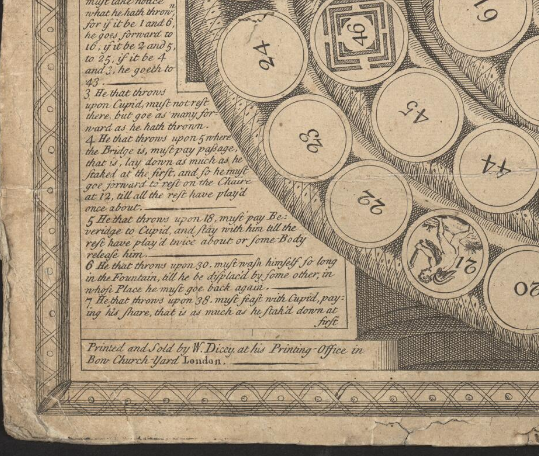 must take notice
what he hath thrown
for if it be 1 and 6,
he goes forward to
16, if it be 2 and 5,
to 25, if it be 4
and 3, he goeth to
43.
3 He that throws
upon Cupid, must not rest
there, but goe as many for-
ward as he hath thrown.
4. He that throws upon 5 where
the Bridge is, must pay passage,
that is, lay down as much as he
staked at the first, and so he must
goe forward to rest on the Chaire
at 12, till all the rest have play'd
once about.
5 He that throws upon 18, must pay Be-
veridge to Cupid, and stay with him till the
rest have play'd twice about or some Body
release him.
6 He that throws upon 30. must wash himself so long
in the Fountain, till he be displac'd by some other, in
whose Place he must goe back again.
7 He that throws upon 38. must feast with Cupid, pay-
ing his share, that is as much as he stak'd down at
first
Printed and Sold by W. Dicey, at his Printing-Office in
Bow Church-Yard London.
24
46
19
45
23
44
22
20